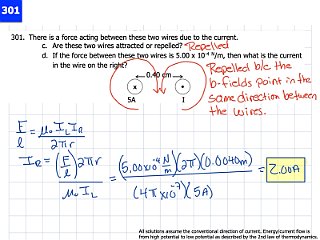 301
301. There is a force acting between these two wires due to the current.
c. Are these two wires attracted or repelled? Repelled
d. If the force between these two wires is 5.00 x 10⁻⁴ ᴺ/m, then what is the current
in the wire on the right?
Repelled b/c the
b-fields point in the
same direction between
the wires.
0.40 cm
x
5A I
F/l = μ₀ I_L I_R / 2πr
I_R = (F/l) 2πr / μ₀ I_L = (5.00x10⁻⁴ N/m)(2π)(0.0040m) / (4πx10⁻⁷)(5A) = 2.00A
All solutions assume the conventional direction of current. Energy/current flow is
from high potential to low potential as described by the 2nd law of thermodynamics.